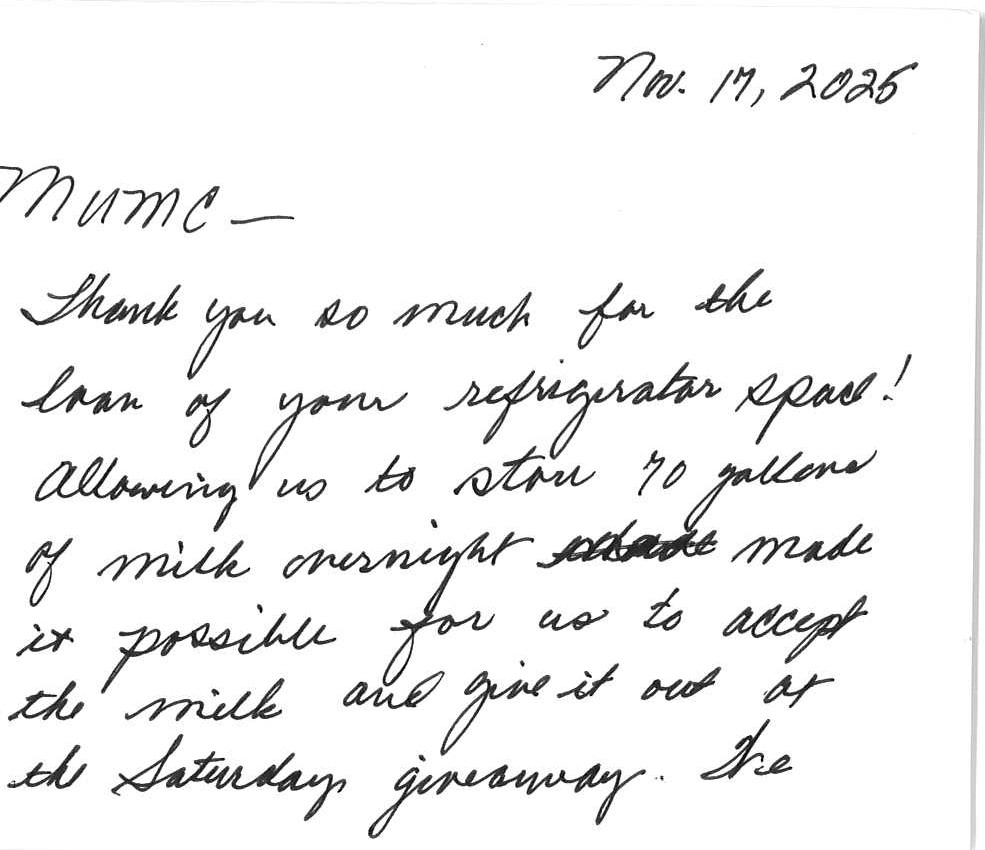 Nov. 17, 2025
MUMC —
Thank you so much for the
loan of your refrigerator space!
Allowing us to store 70 gallons
of milk overnight made
it possible for us to accept
the milk and give it out at
the Saturday giveaway. The